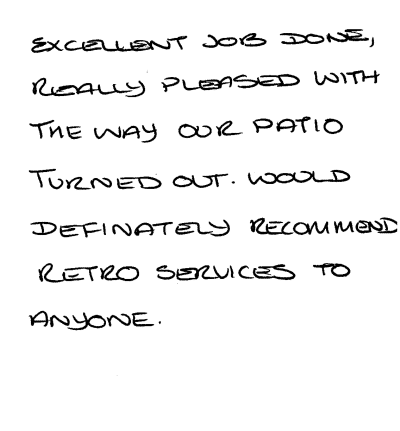 EXCELLENT JOB DONE,
REALLY PLEASED WITH
THE WAY OUR PATIO
TURNED OUT. WOULD
DEFINATELY RECOMMEND
RETRO SERVICES TO
ANYONE.